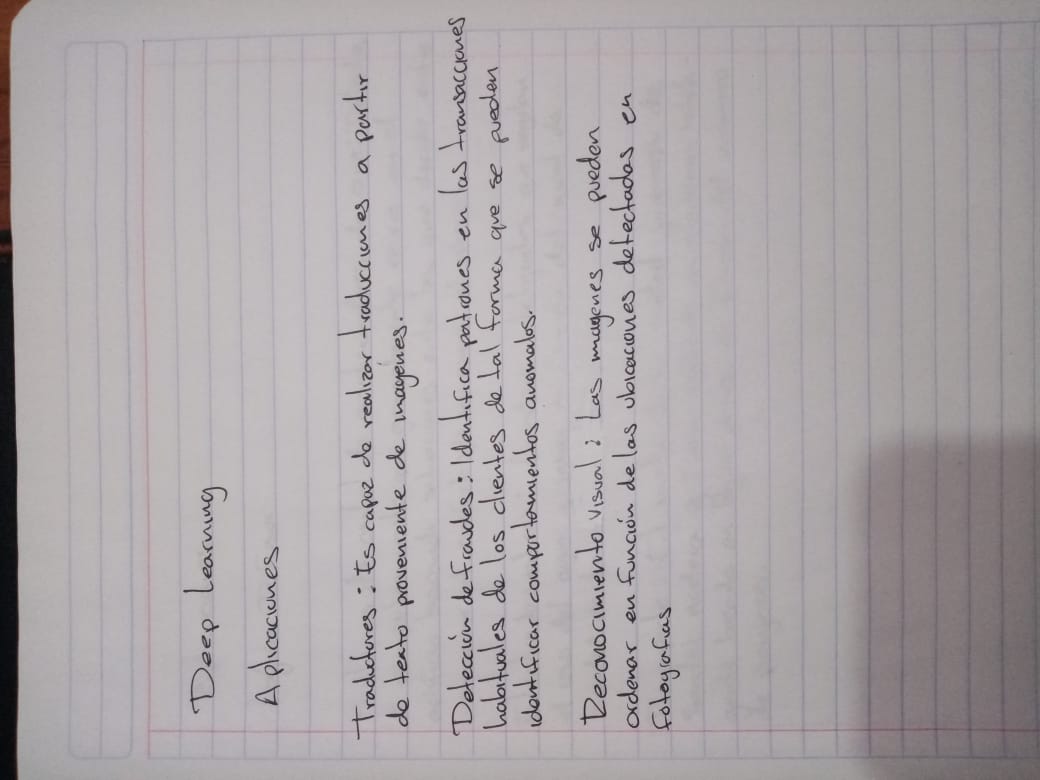 Deep Learning
Aplicaciones
Traductores: Es capaz de realizar traducciones a partir
de texto proveniente de imagenes.
Detección de fraudes: Identifica patrones en las transacciones
habituales de los clientes de tal forma que se pueden
identificar comportamientos anomalos.
Reconocimiento visual: Las imagenes se pueden
ordenar en función de las ubicaciones detectadas en
fotografias